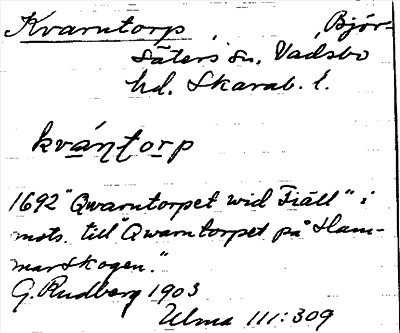 Kvarntorp, Björ-
säters sn, Vadsbo
hd. Skarab. l.
kvántorp
1692 "Qwarntorpet wid Fiäll" i
mots. till "Qwarntorpet på Ham-
marskogen."
G. Rudberg 1903
Ulma 111:309